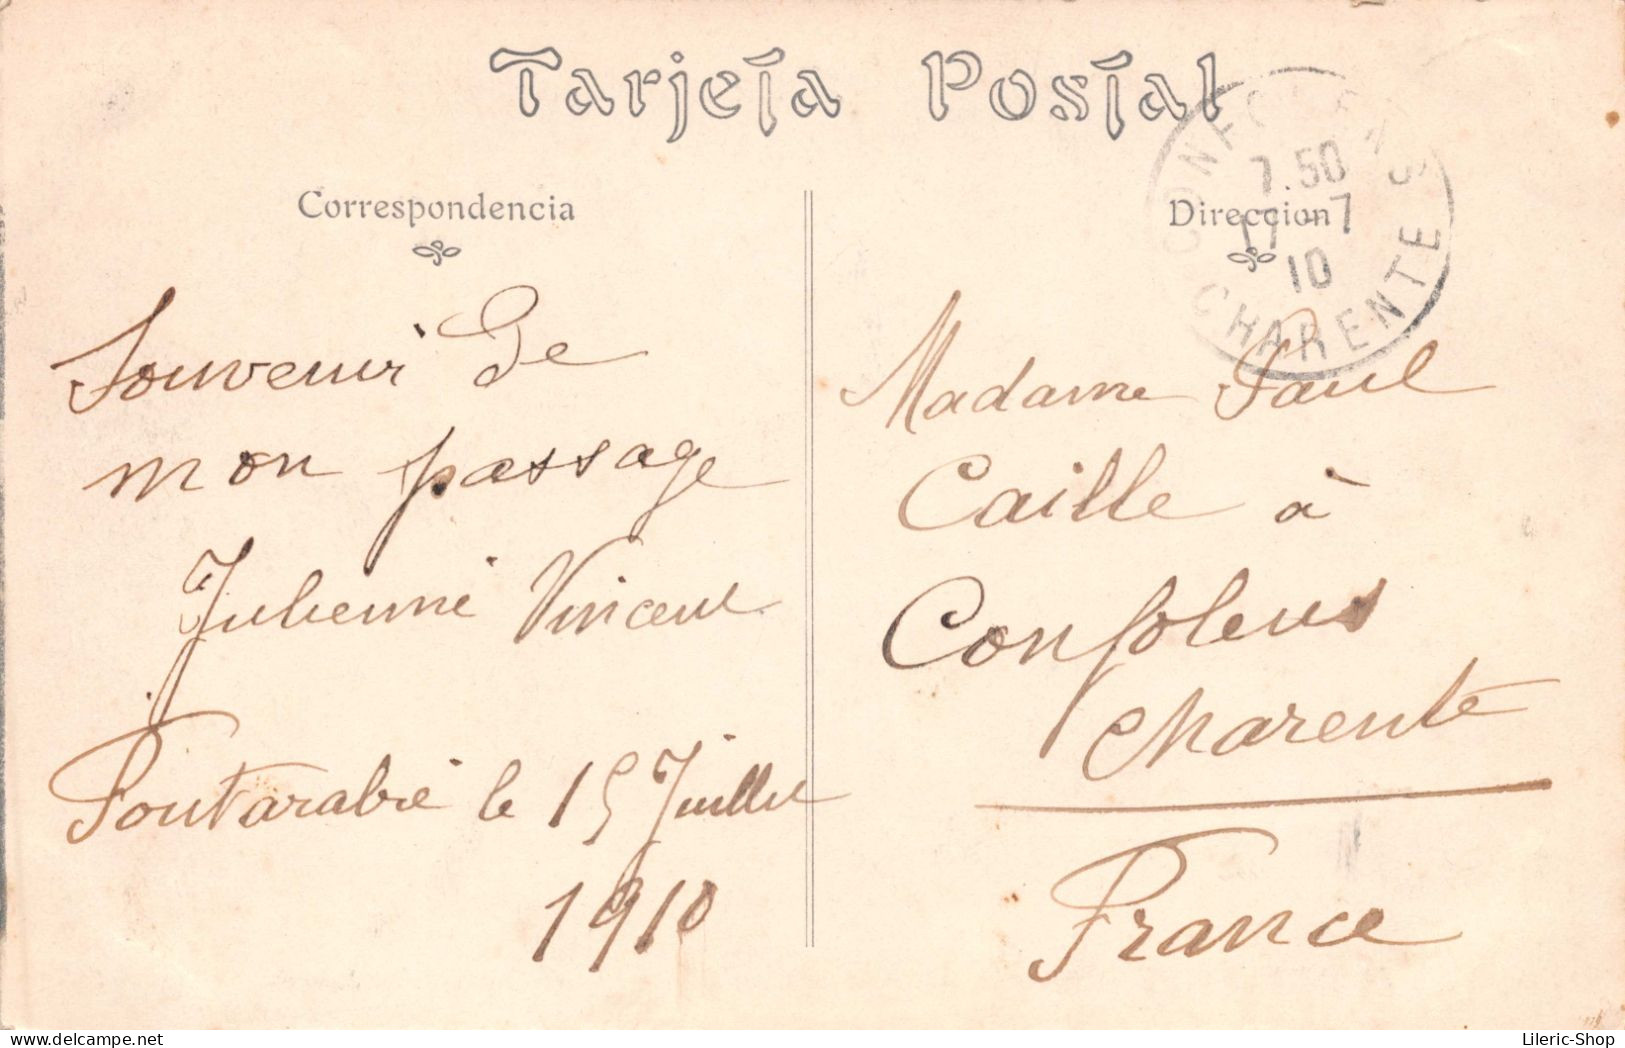 Tarjeta Postal
Correspondencia
Souvenir de
mon passage
Julienne Vincent
Fontarabie le 15 Juillet
1910
Direccion
CONFOLENS
7 50
17-7
10
CHARENTE
Madame Paul
Caille à
Confolens
Charente
France
Lileric-Shop